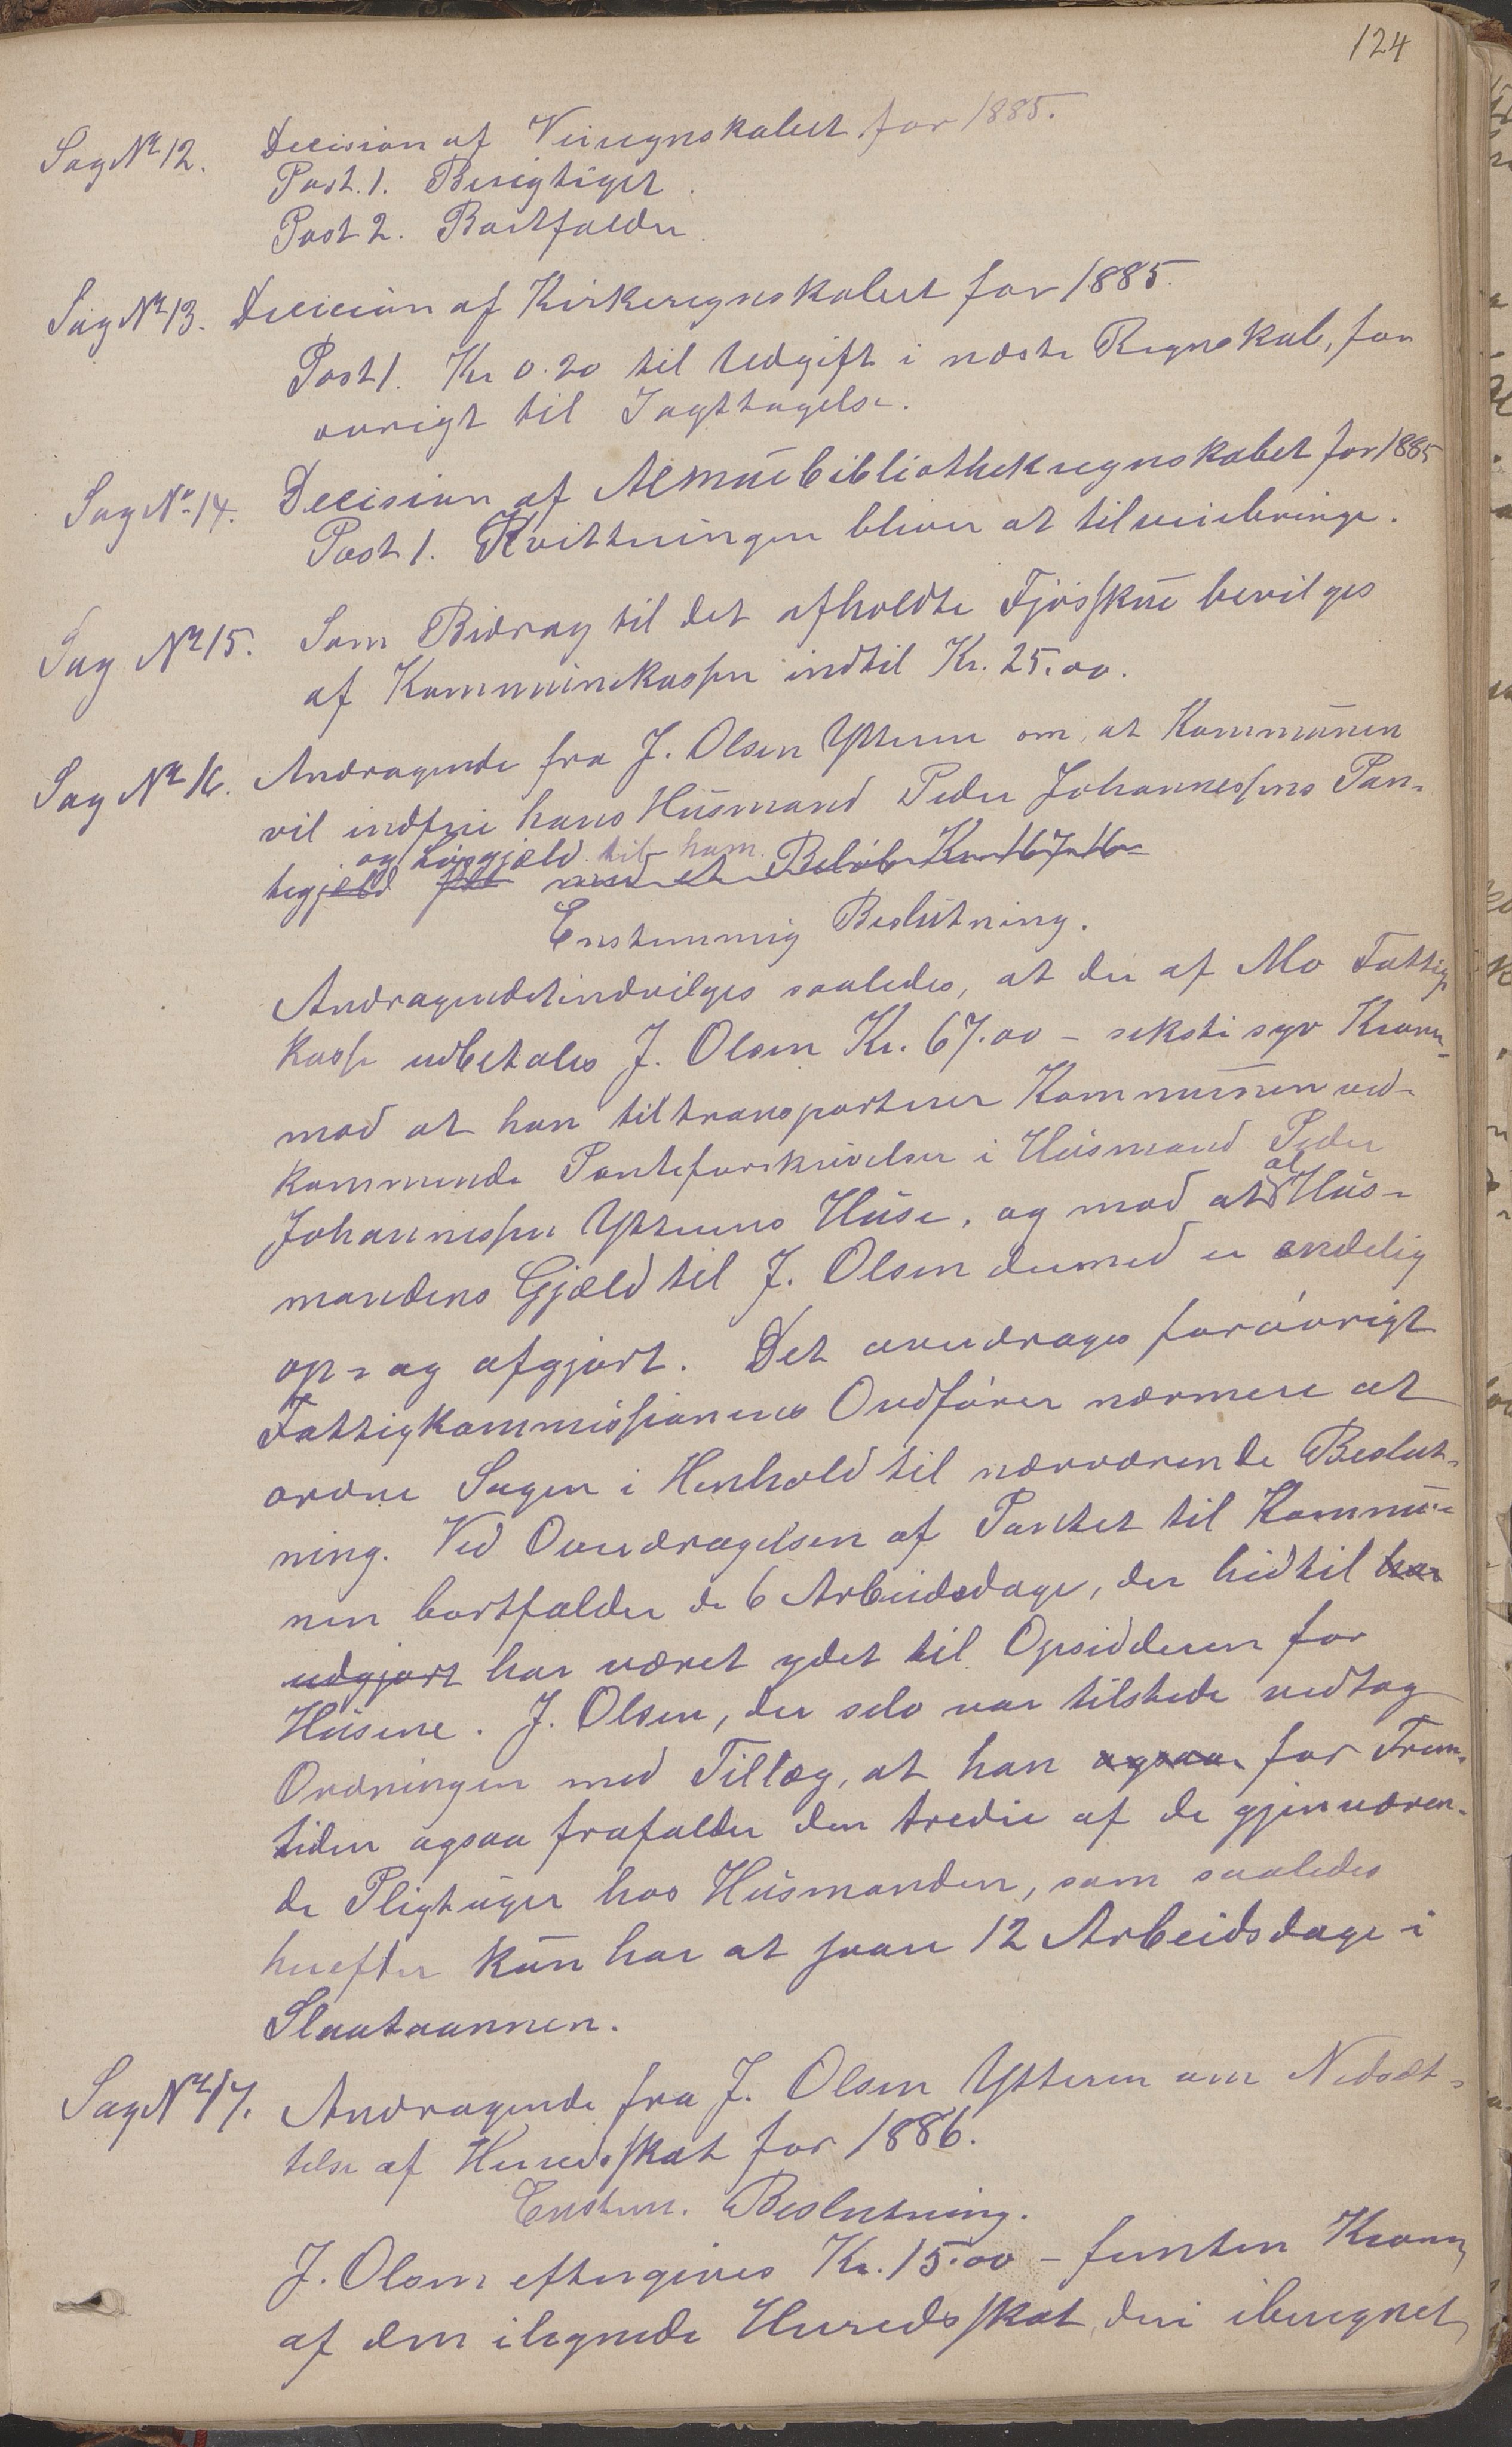 124
Sag Nr 12. Decision af Veiregnskabet for 1885.
Post. 1. Berigtiget.
Post 2. Bortfalder.
Sag Nr 13. Decision af Kirkeregnskabet for 1885.
Post 1. Kr 0.20 til Udgift i næste Regnskab, for
øvrigt til Iagttagelse.
Sag Nr 14. Decision af Almuebibliothekregnskabet for 1885
Post 1. Kvitteringen bliver at tilveiebringe.
Sag Nr 15. Som Bidrag til det afholdte Fjøsskue bevilges
af Kommunekassen indtil Kr. 25.00.
Sag Nr 16. Andragende fra J. Olsen Ytteren om, at Kommunen
vil indfrie hans Husmand Peder Johannessens Pan-
og Løsgjæld til ham.
tegjæld med et Beløb Kr 167.16
Enstemmig Beslutning.
Andragendet indvilges saaledes, at der af Mo Fattig
kasse udbetales J. Olsen Kr. 67.00 – seksti syv Kroner –
mod at han tiltransporterer Kommunen ved-
kommende Panteforskrivelser i Husmand Peder
Johannessen Ytterens Huse, og mod at al Hus-
mandens Gjæld til J. Olsen dermed er endelig
op- og afgjort. Det overdrages forøvrigt
Fattigkommissionens Ordfører nærmere at
ordne Sagen i Henhold til nærværende Beslut-
ning. Ved Overdragelsen af Pantet til Kommu-
nen bortfalder de 6 Arbeidsdage, der hidtil har
udgjort har været ydet til Opsidderen for
Husene. J. Olsen, der selv var tilstede vedtog
Ordningen med Tillæg, at han ogsaa for Frem-
tiden ogsaa frafalder den tredie af de gjenværen-
de Pligtuger hos Husmanden, som saaledes
herefter kun har at svare 12 Arbeidsdage i
Slaataannen.
Sag Nr 17. Andragende fra J. Olsen Ytteren om Nedsæt-
telse af Herredsskat for 1886.
Enstem. Beslutning.
J. Olsen eftergives Kr. 15.00 – femten Kroner
af den ilignede Herredsskat, deri iberegnet